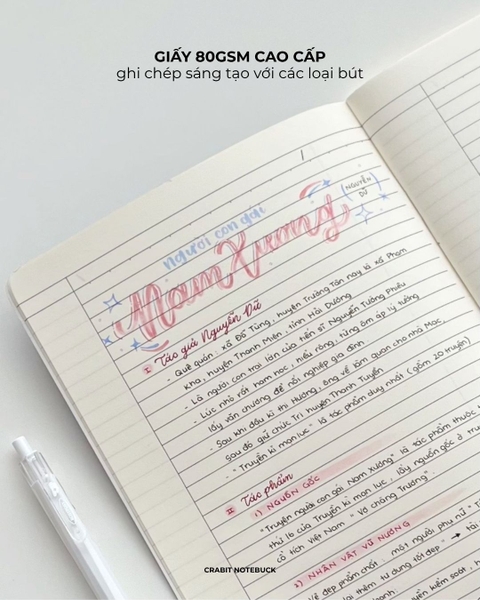 GIẤY 80GSM CAO CẤP
ghi chép sáng tạo với các loại bút
người con gái
Nam Xương
(NGUYỄN DỮ)
I Tác giả Nguyễn Dữ
- Quê quán: xã Đỗ Tùng, huyện Trường Tân nay là xã Phạm
Kha, huyện Thanh Miện, tỉnh Hải Dương
- Là người con trai lớn của tiến sĩ Nguyễn Tường Phiêu
- Lúc nhỏ rất ham học, hiểu rộng, từng ôm ấp lý tưởng
lấy văn chương để nối nghiệp gia đình
- Sau khi đậu kì thi Hương, ông về làm quan cho nhà Mạc,
sau đó giữ chức Tri huyện Thanh Tuyền
- "Truyền kì mạn lục" là tác phẩm duy nhất (gồm 20 truyện)
II Tác phẩm
1) NGUỒN GỐC
"Truyện người con gái Nam Xương" là tác phẩm thuộc
thứ 16 của Truyền kì mạn lục, lấy nguồn gốc ở
cổ tích Việt Nam "Vợ chàng Trương"
2) NHÂN VẬT VŨ NƯƠNG
Vẻ đẹp phẩm chất: một người phụ nữ
lại thêm tư dung tốt đẹp" →
kiểm soát,
CRABIT NOTEBUCK